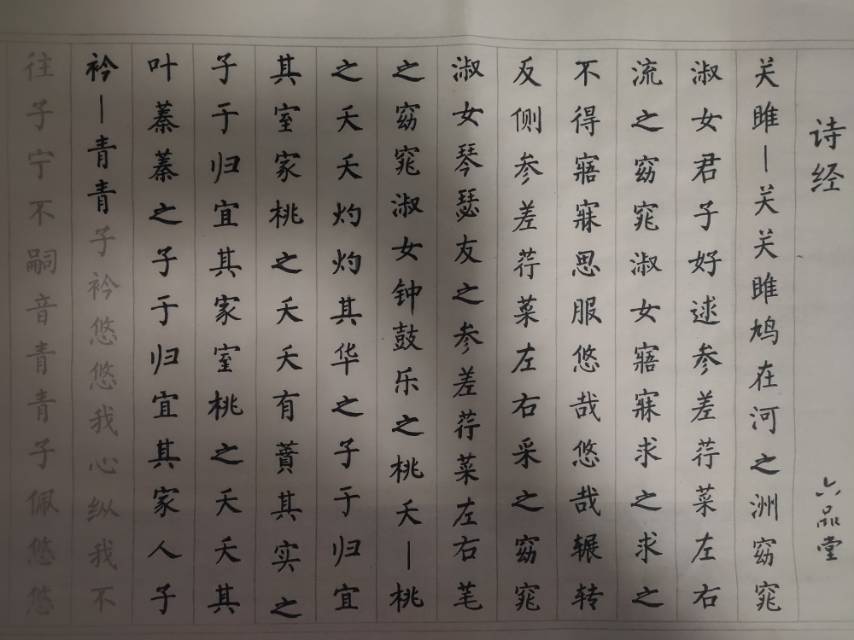 诗经 六品堂
关雎一关关雎鸠在河之洲窈窕
淑女君子好逑参差荇菜左右
流之窈窕淑女寤寐求之求之
不得寤寐思服悠哉悠哉辗转
反侧参差荇菜左右采之窈窕
淑女琴瑟友之参差荇菜左右芼
之窈窕淑女钟鼓乐之桃夭一桃
之夭夭灼灼其华之子于归宜
其室家桃之夭夭有蕡其实之
子于归宜其家室桃之夭夭其
叶蓁蓁之子于归宜其家人子
衿一青青子衿悠悠我心纵我不
往子宁不嗣音青青子佩悠悠